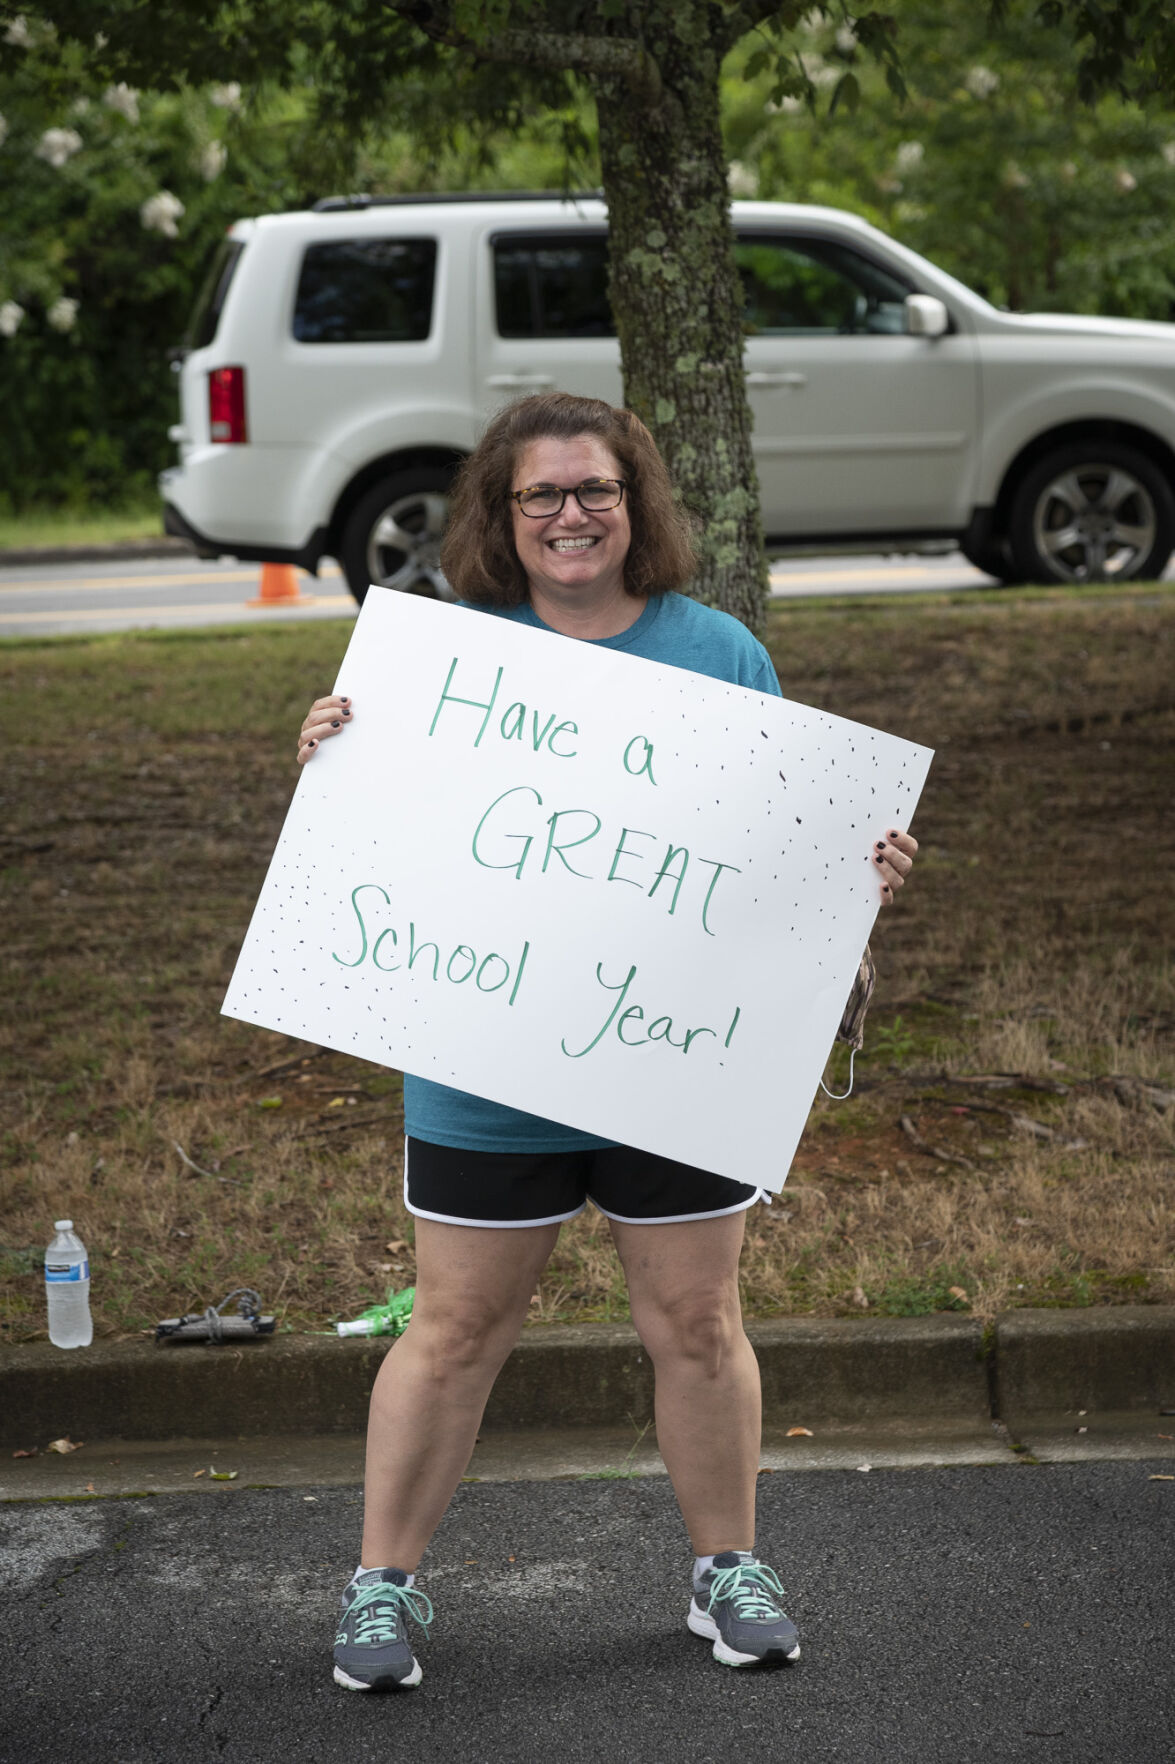 Have a
GREAT
School Year!